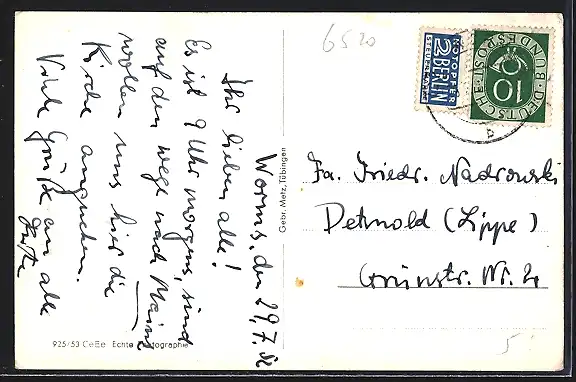 6520
NOTOPFER
2 BERLIN
STEUERMARKE
DEUTSCHE BUNDESPOST
10
b
Worms, den 29.7.52
Ihr lieben alle!
Es ist 9 Uhr morgens, sind
auf dem Wege nach Mainz
wollen uns hier die
Kirche angucken.
Viele Grüße an alle
Gebr. Metz, Tübingen
Fa. Friedr. Nadrowski
Detmold (Lippe)
Grünstr. Nr. 2
925/53 CeEe Echte Fotographie
5